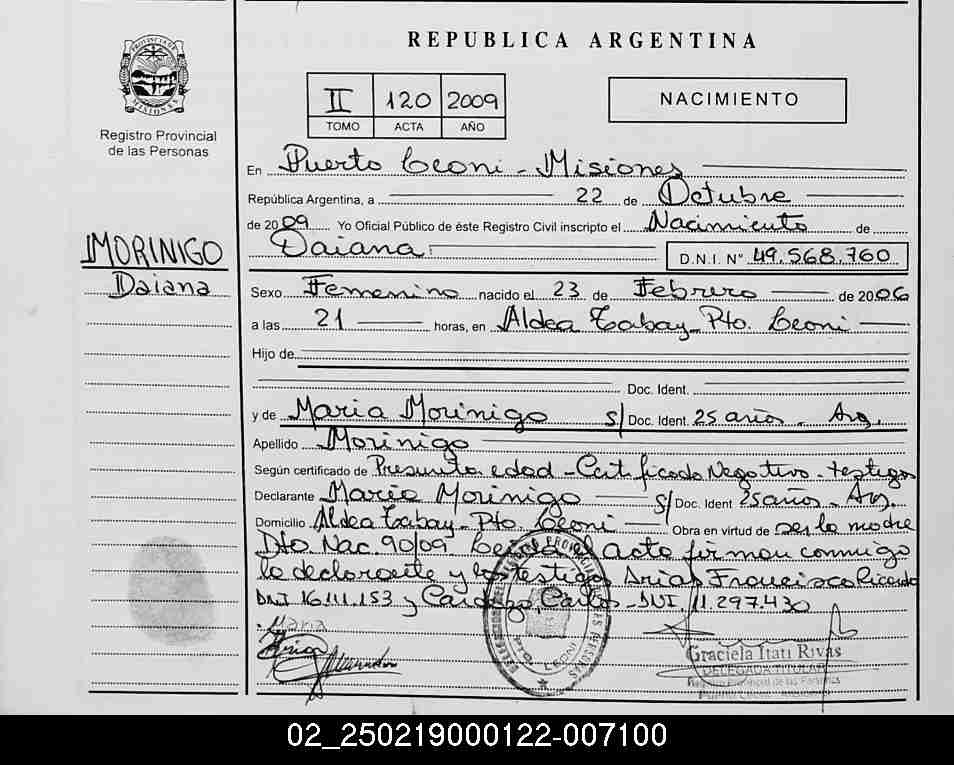 REPUBLICA ARGENTINA
PROVINCIA DE MISIONES
Registro Provincial
de las Personas
II 120 2009
TOMO ACTA AÑO
NACIMIENTO
En Puerto Leoni - Misiones
República Argentina, a 22 de Octubre
de 2009 Yo Oficial Público de éste Registro Civil inscripto el Nacimiento de
MORINIGO
Daiana
Daiana
D.N.I. N° 49.568.760
Sexo Femenino nacido el 23 de Febrero de 2006
a las 21 horas, en Aldea Tabay - Pto. Leoni
Hijo de
Doc. Ident.
y de Maria Morinigo s/ Doc. Ident. 25 años. Arg.
Apellido Morinigo
Según certificado de Presunta edad - Certificado Negativo - testigos
Declarante Maria Morinigo s/ Doc. Ident 25 años. Arg.
Domicilio Aldea Tabay - Pto. Leoni Obra en virtud de ser la madre
Dto. Nac. 90/09. Leída el acta firman conmigo
la declarante y los testigos Arias Francisco Ricardo
DNI 16.111.153 y Cardozo, Carlos - DNI. 11.297.430
Maria
Graciela Itati Rivas
DELEGADA TITULAR
Registro Provincial de las Personas
02_250219000122-007100